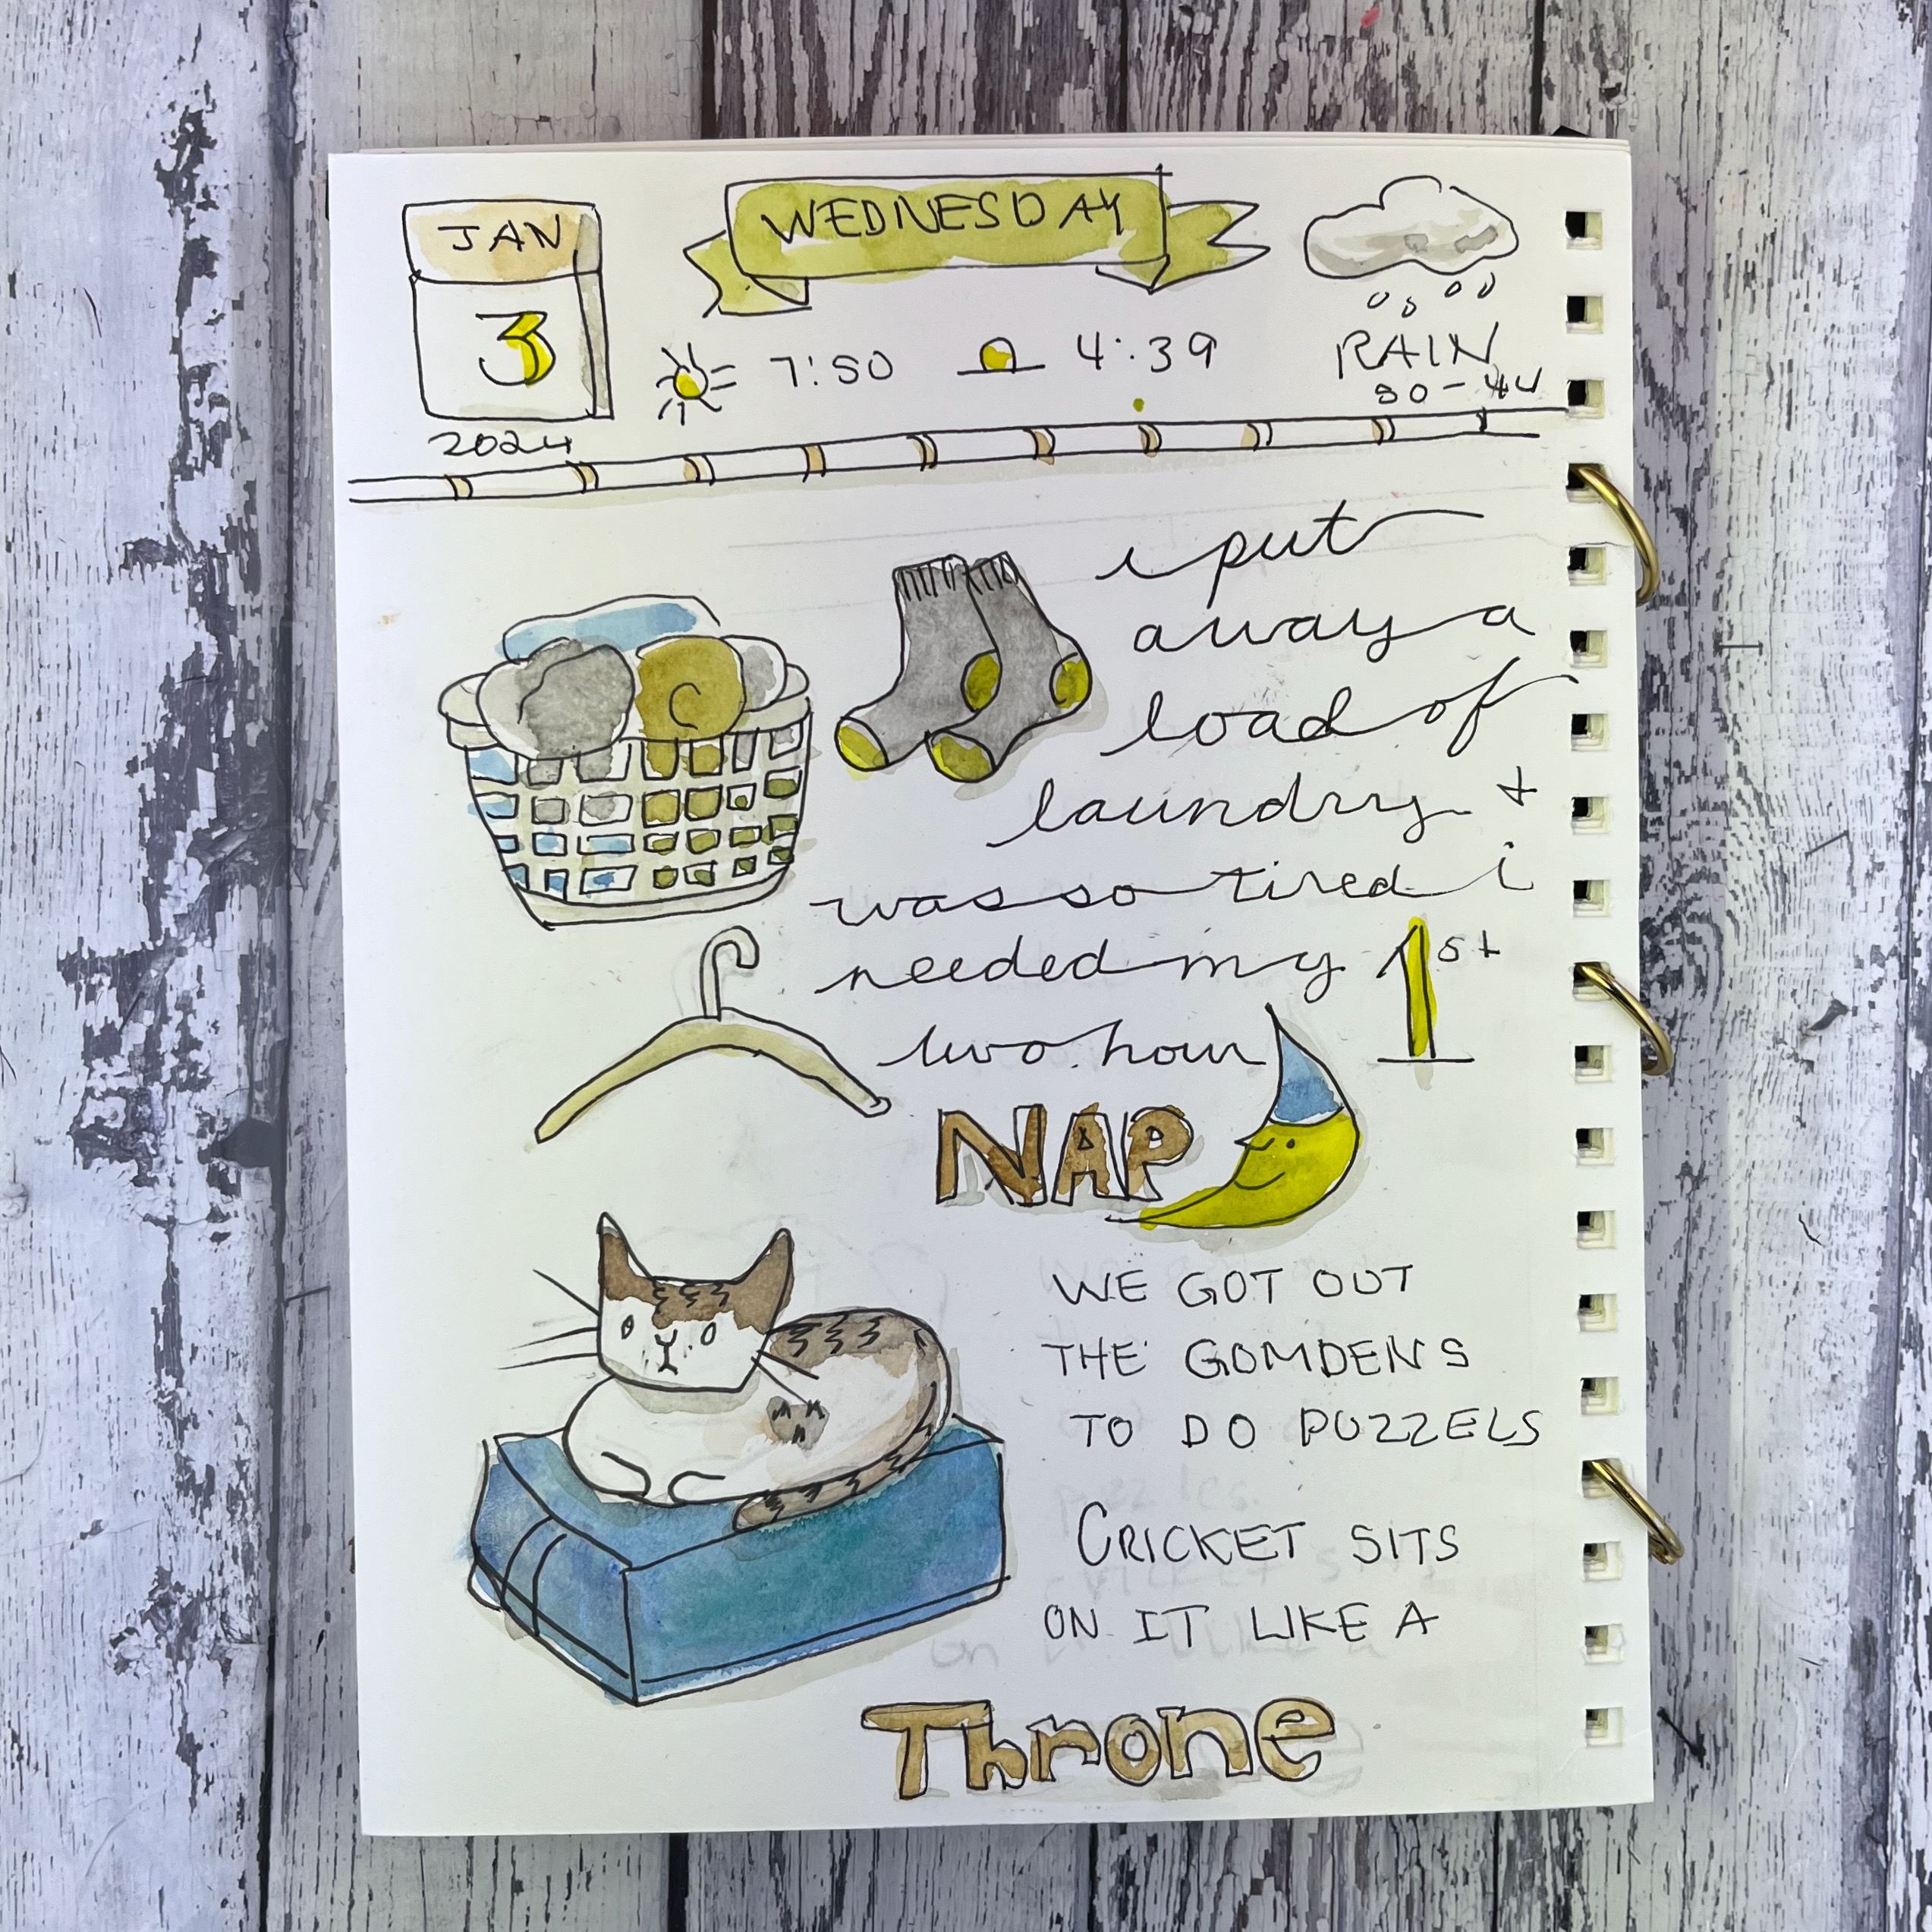 JAN
3
2024
WEDNESDAY
7:50 4:39
RAIN
30-44
i put
away a
load of
laundry +
was so tired i
needed my 1st
two hour
NAP
WE GOT OUT
THE GOMDENS
TO DO PUZZELS
CRICKET SITS
ON IT LIKE A
Throne